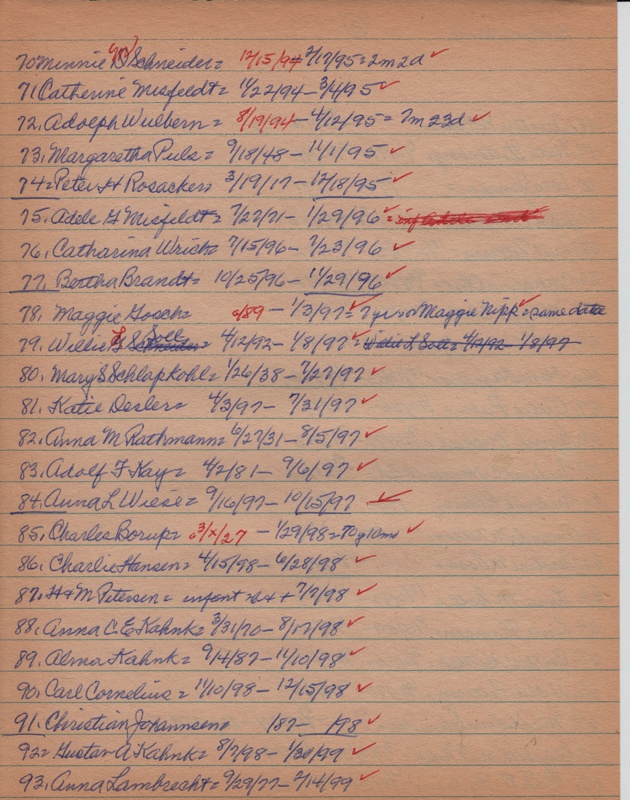 70 Minnie D Schneider = 12/15/94 2/17/95 = 2m 2d ✓
71, Catherine Misfeldt = 11/22/94 - 3/4/95 ✓
72, Adolph Wulbern = 8/19/94 - 4/12/95 = 7m 23d ✓
73, Margaretha Puls = 9/18/48 - 11/1/95 ✓
74 = Peter H Rosacker = 3/19/17 - 12/18/95 ✓
75, Adele G Misfeldt = 7/27/71 - 1/29/96 ✓
76, Catharina Wrich = 7/15/96 - 7/23/96 ✓
77, Bertha Brandt = 10/25/96 - 11/29/96 ✓
78, Maggie Gosch = 0/89 - 1/3/97 = 7 yrs or Maggie Nipp = same date
79, Willie L Soll = 4/12/92 - 1/8/97 ✓ = Willie L Soll = 4/12/92 - 1/8/97
80, Mary S Schlapkohl = 1/26/38 - 7/27/97 ✓
81, Katie Desler = 4/3/97 - 7/31/97 ✓
82, Anna M Rathmann = 6/27/31 - 8/15/97 ✓
83, Adolf F Kay = 4/2/81 - 9/6/97 ✓
84, Anna L Wiese = 9/16/97 - 10/15/97 ✓
85, Charles Borup = 3/x/27 - 1/29/98 = 70y 10mo ✓
86, Charlie Hansen = 4/15/98 - 6/28/98 ✓
87, H & M Petersen = infant = b + 7/7/98 ✓
88, Anna C. E Kahnk = 3/31/70 - 8/17/98 ✓
89, Alma Kahnk = 9/14/87 - 11/10/98 ✓
90, Carl Cornelius = 11/10/98 - 12/15/98 ✓
91, Christian Johannsen = 187 - 198 ✓
92 = Gustav A Kahnk = 8/7/98 - 1/30/99 ✓
93, Anna Lambrecht = 9/29/77 - 2/14/99 ✓